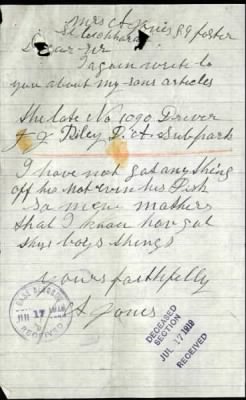 Mrs A Jones 89 foster
St Leichhardt
Dear Sir
I again write to
you about my sons articles
The late No 1090 Driver
Riley Subpark
I have not got anything
off his not even his Disk
so menie mathers
that I know have got
thys boys things
yours faithfully
A Jones
BASE RECORDS
JUL 17 1919
RECEIVED
DECEASED
SECTION
JUL 17 1919
RECEIVED